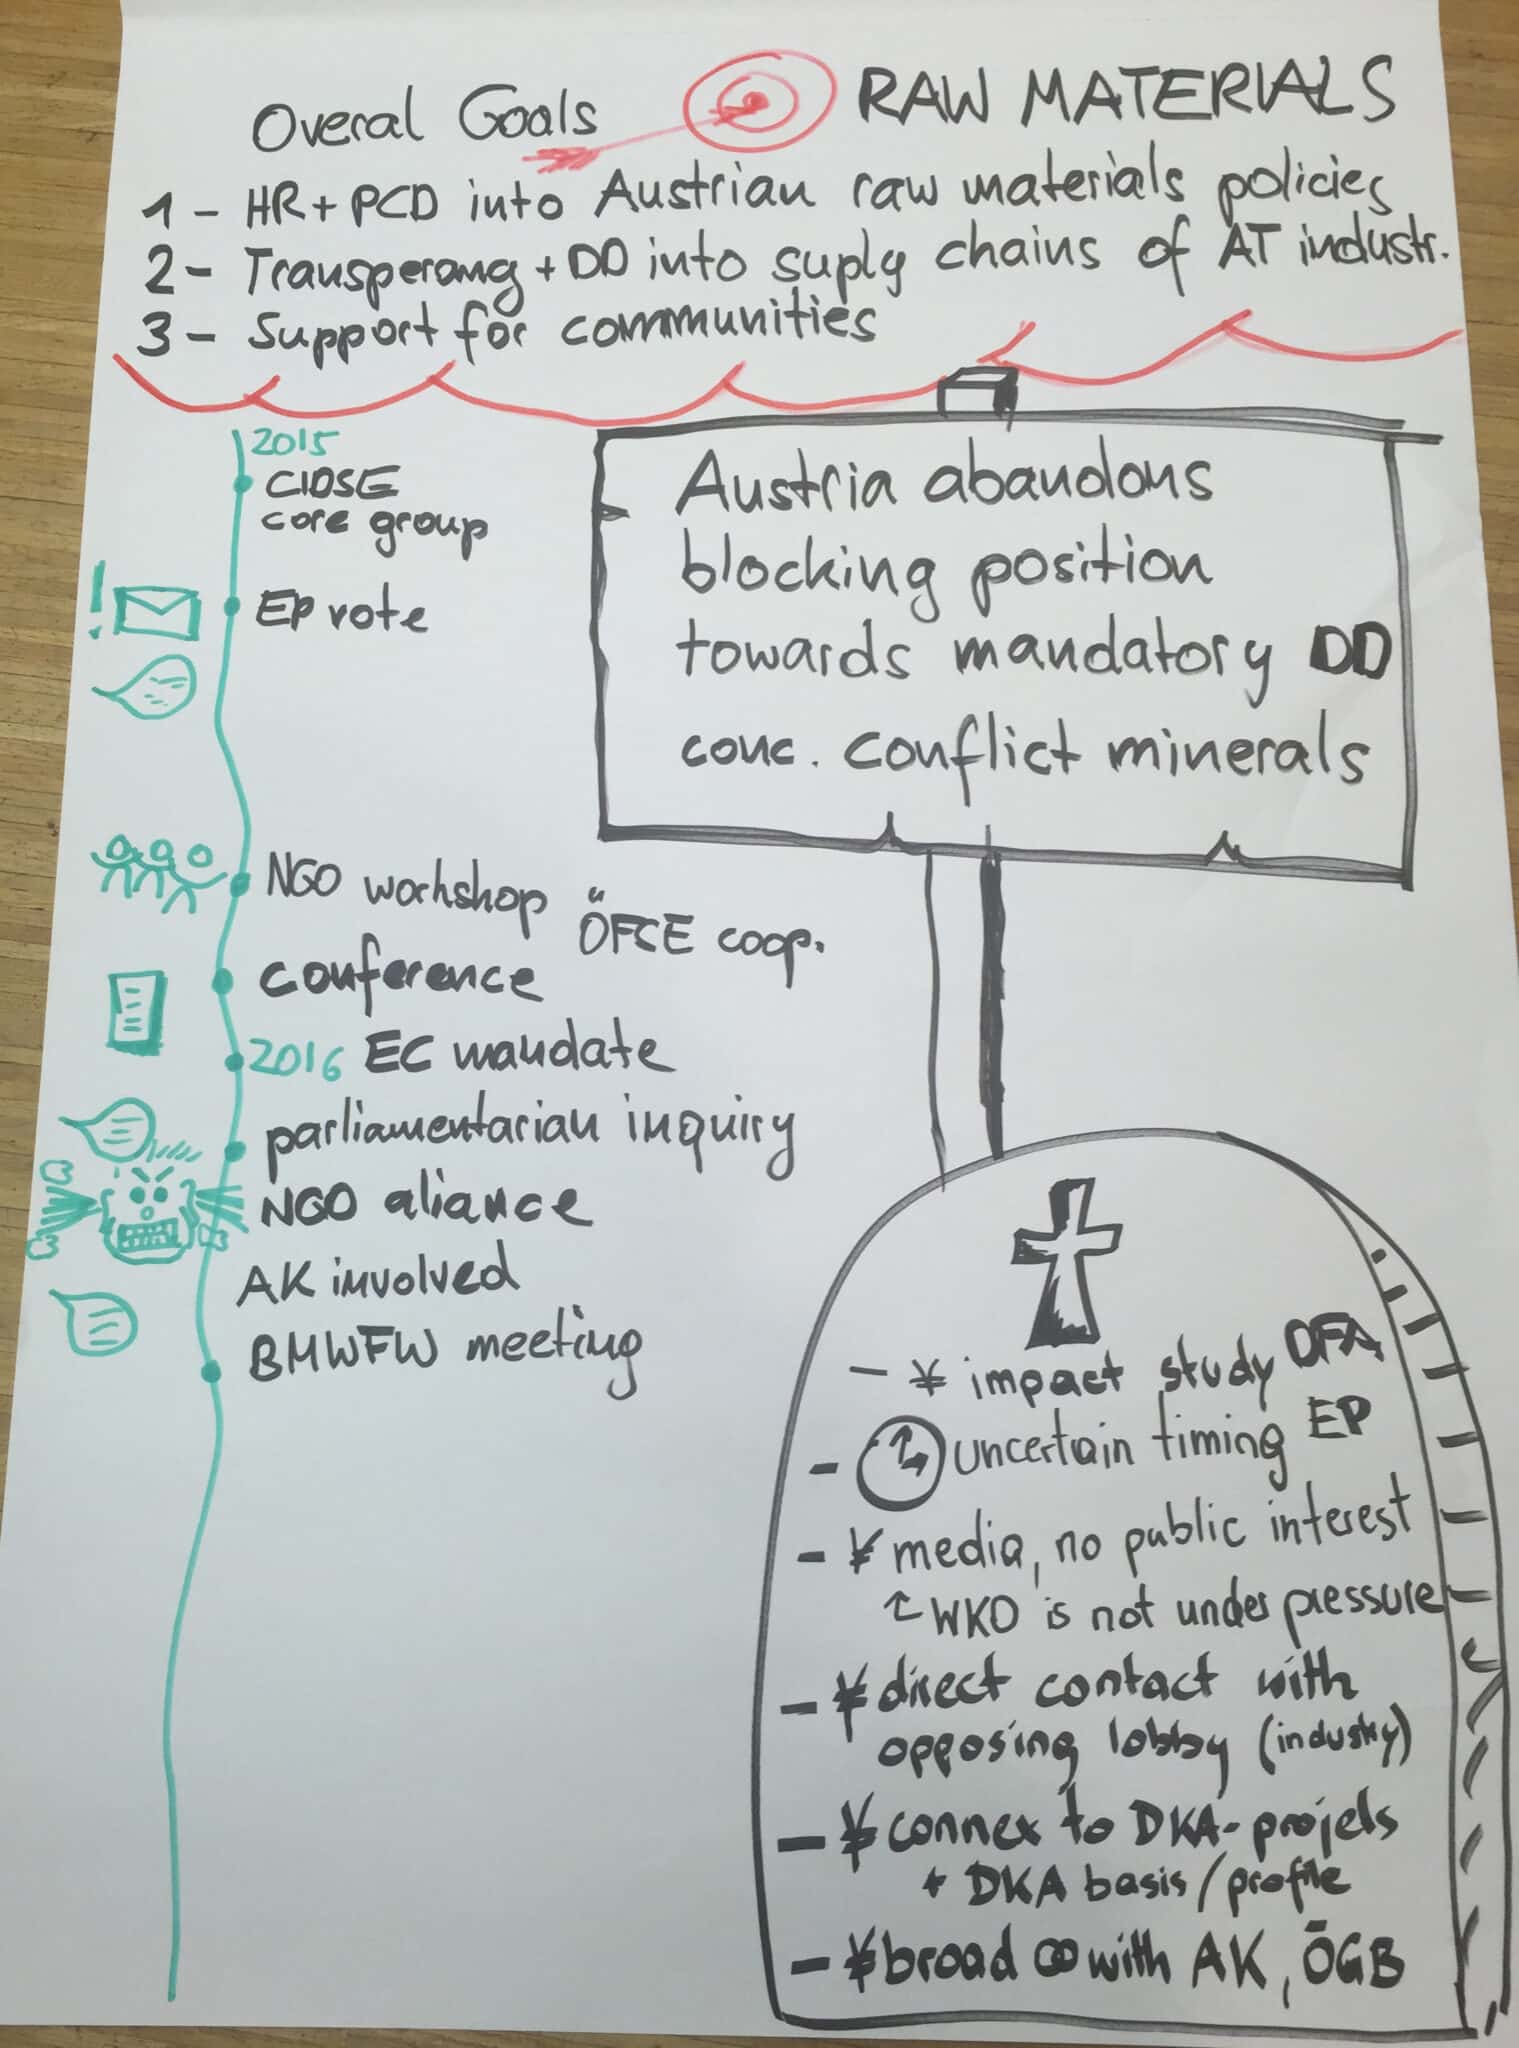 Overal Goals RAW MATERIALS
1 - HR + PCD into Austrian raw materials policies
2 - Transperang + DD into suply chains of AT industr.
3 - Support for communities
2015
CIDSE
core group
! EP vote
NGO workshop ÖFSE coop.
conference
2016 EC mandate
parliamentarian inquiry
NGO aliance
AK involved
BMWFW meeting
Austria abandons
blocking position
towards mandatory DD
conc. conflict minerals
- impact study DFA
- uncertain timing EP
- media, no public interest
WKO is not under pressure
- direct contact with
opposing lobby (industry)
- connex to DKA-projets
+ DKA basis / profile
- broad ∞ with AK, ÖGB